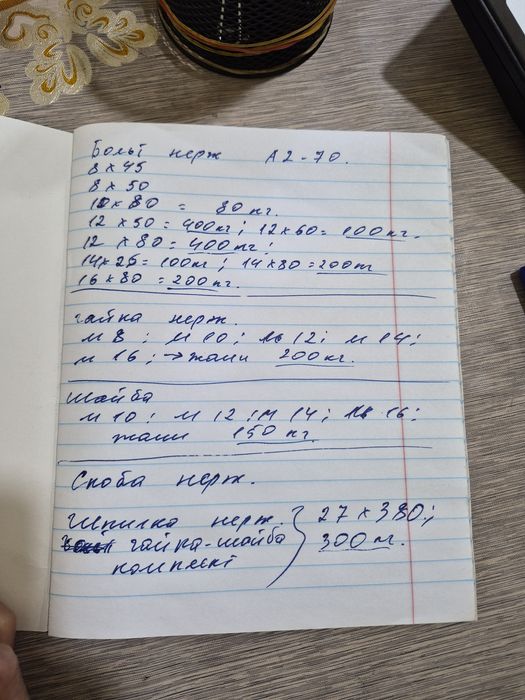 Болт нерж А2-70.
8x45
8x50
10x80 = 80 кг.
12x50 = 400кг; 12x60 = 100кг.
12 x80 = 400кг;
14x25 = 100кг; 14x80 = 200кг
16x80 = 200кг.
гайка нерж.
м 8; м 10; м 12; м 14;
м 16; → жами 200кг.
шайба
м 10; м 12; м 14; м 16;
жами 150 кг.
Скоба нерж.
Шпилка нерж. 27x380;
гайка-шайба 300м.
комплект